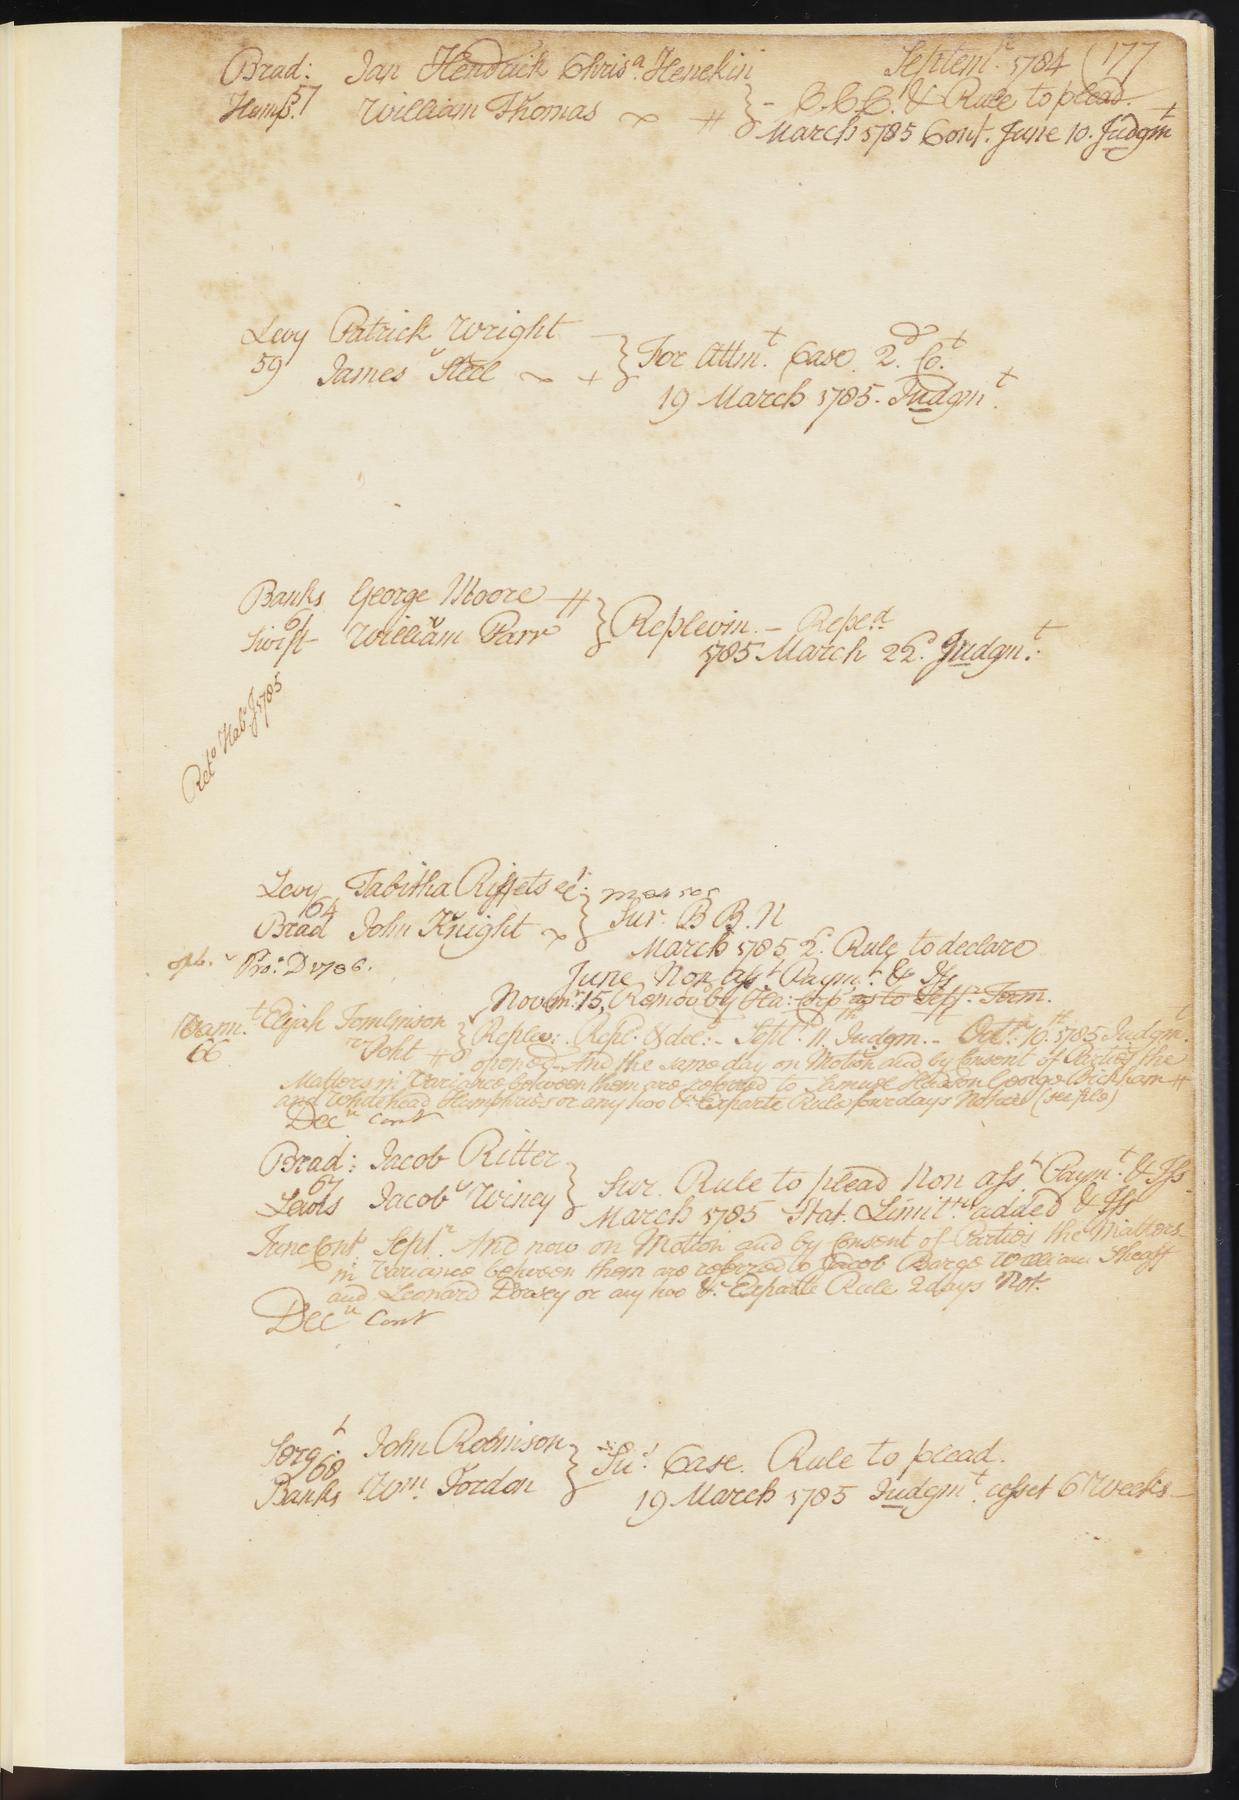 Septemr. 1784 (177
Brad: Jan Hendrick Chrisa. Henekin
Hump. 57 William Thomas } - C.C.C. & Rule to plead.
March 1785 Cont. June 10. Judgmt
Levy Patrick Wright
59 James Steel } For Attmt. Case. 2d. Ct.
19 March 1785. Judgmt.
Banks George Moore
61
Swift William Parr } Replevin. - Reped
1785 March 22. Judgmt.
Retd Hab. J 1785
Levy Tabitha
64
Brad John Knight } Sur. B B. N
March 1785 2. Rule to declare
Pro. D 1786.
June Non asst Paymt. & Iss
Novemr. 15, Remov'd by Ha: Corp as to Sepr. Term.
Elijah Tomlinson
66 Poht } Replev: Repl. & decl: - Sept. 11th Judgm. - Octr. 10th. 1785 Judgmt.
opened - And the same day on Motion and by Consent of Parties the
Matters in Variance between them are referred to Samuel Hudson George Bickham
and Whitehead Humphries or any two &c Exparte Rule four days Notice (see file)
Decr Cont
Brad: Jacob Ritter
67
Lewis Jacob Winey } Sur. Rule to plead Non asst. Paymt. & Iss.
March 1785 Stat. Limitns added & Iss
June Cont. Sept. And now on Motion and by Consent of Parties the Matters
in Variance between them are referred to Jacob Barge William Sheaff
and Leonard Dorsey or any two &c. Exparte Rule 2 days Not.
Decr Cont
Sergt. John Robinson
68
Banks Wm. Jordon } Sur. Case. Rule to plead.
19 March 1785 Judgmt. cesset 6 weeks